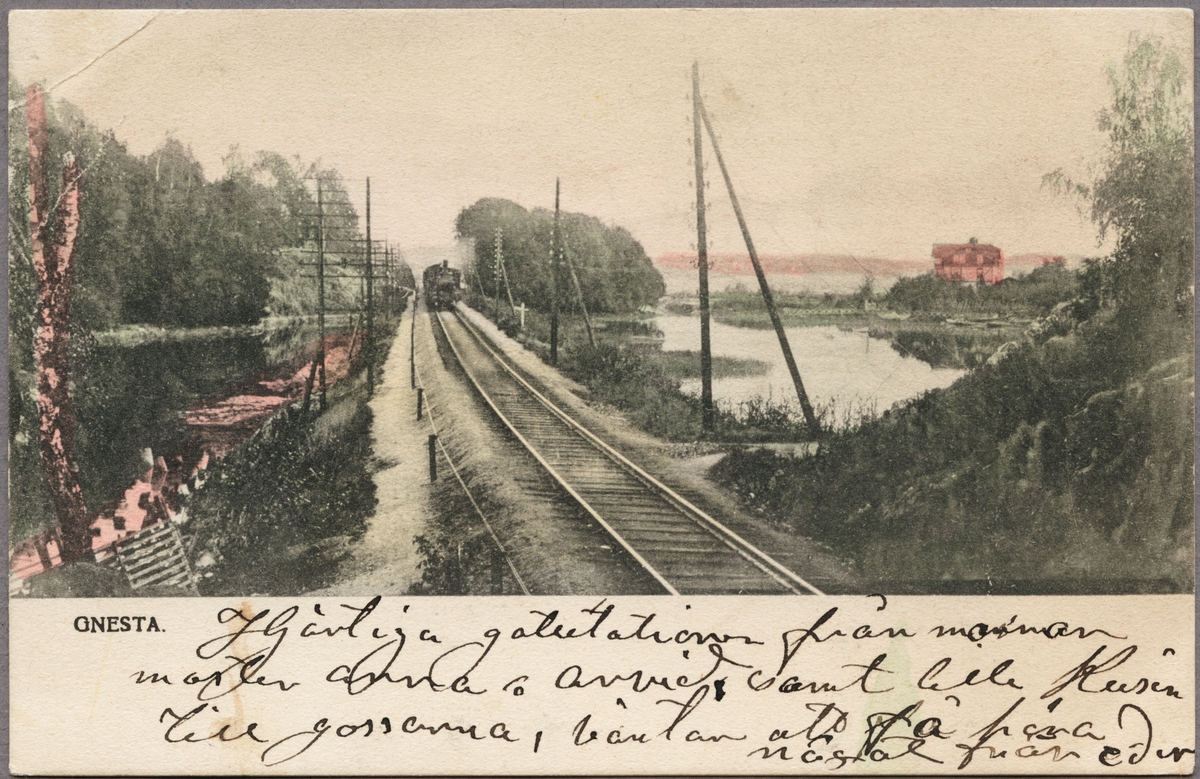 GNESTA.
Hjärtliga gratulationer från mamman
moster anna o arvid, samt lille Kusin
till gossarna, väntar att få höra
något från eder